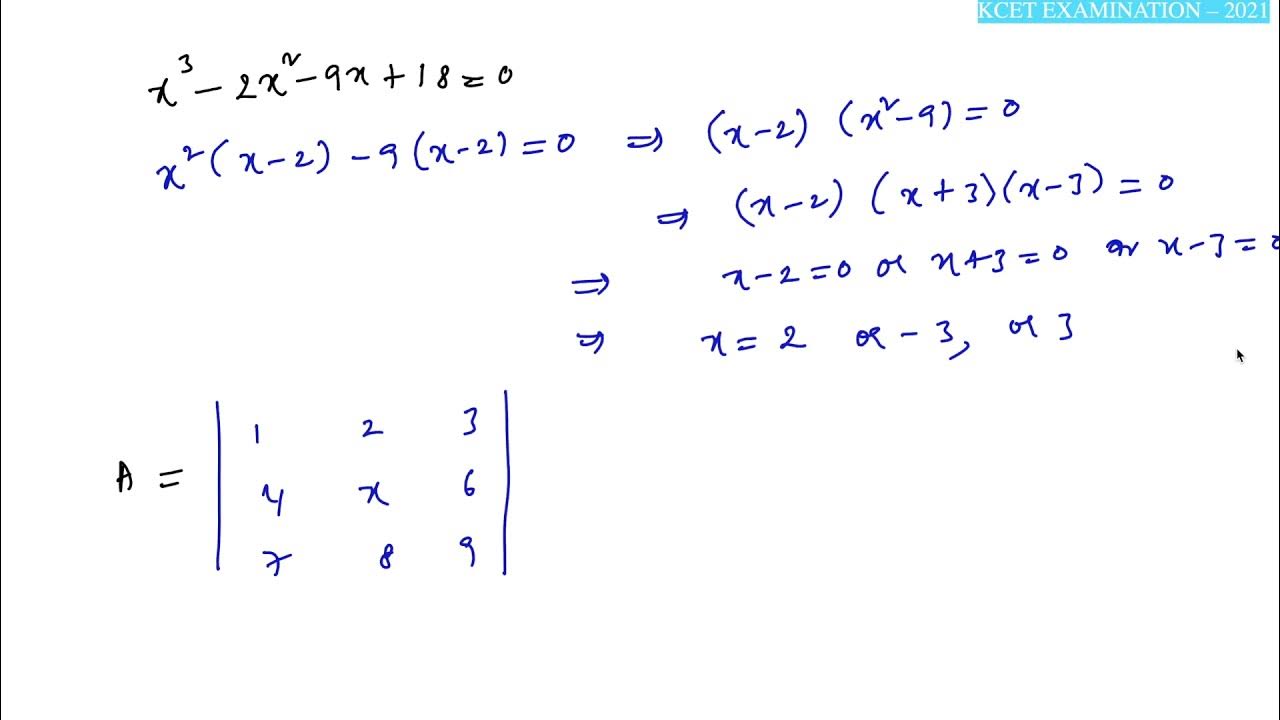 KCET EXAMINATION – 2021
x³ − 2x² − 9x + 18 = 0
x²(x−2) − 9(x−2) = 0 ⇒ (x−2) (x²−9) = 0
⇒ (x−2) (x+3)(x−3) = 0
⇒ x−2=0 or x+3=0 or x−3=0
⇒ x = 2 or −3, or 3
A = | 1 2 3 |
| 4 x 6 |
| 7 8 9 |